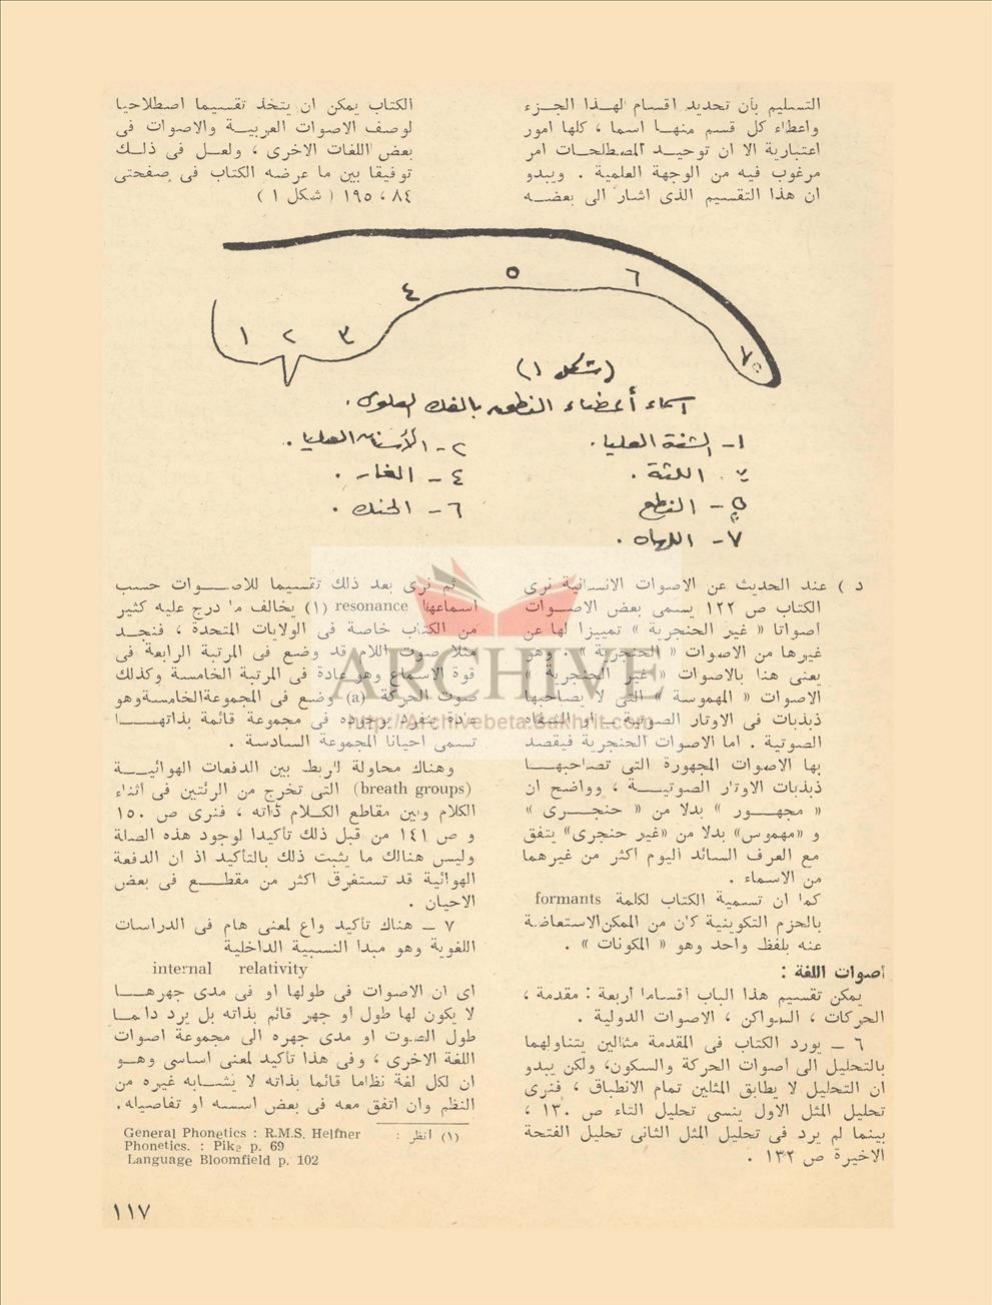 التسليم بأن تحديد اقسام لهذا الجزء
واعطاء كل قسم منها اسما ، كلها امور
اعتبارية الا ان توحيد المصطلحات امر
مرغوب فيه من الوجهة العلمية . ويبدو
ان هذا التقسيم الذى اشار الى بعضه
الكتاب يمكن ان يتخذ تقسيما اصطلاحيا
لوصف الاصوات العربية والاصوات فى
بعض اللغات الاخرى ، ولعل فى ذلك
توفيقا بين ما عرضه الكتاب فى صفحتى
٨٤ ، ١٩٥ ( شكل ١ )
١ ٢ ٣ ٤ ٥ ٦ ٧
(شكل ١)
اسماء أعضاء النطق بالفك العلوى .
١- الشفة العليا .
٢- الأسنان العليا .
٣ . اللثة .
٤ - الغار .
٥ - النطع
٦ - الحنك .
٧- اللهاه .
د ) عند الحديث عن الاصوات الانسانية نرى
الكتاب ص ١٢٢ يسمى بعض الاصوات
اصواتا « غير الحنجرية » تمييزا لها عن
غيرها من الاصوات « الحنجرية » وهو
يعنى هنا بالاصوات « غير الحنجرية »
الاصوات « المهموسة » التى لا يصاحبها
ذبذبات فى الاوتار الصوتية ــ او الشفاه
الصوتية . اما الاصوات الحنجرية فيقصد
بها الاصوات المجهورة التى تصاحبها
ذبذبات الاوتار الصوتية ، وواضح ان
« مجهور » بدلا من « حنجرى »
و «مهموس» بدلا من «غير حنجرى» يتفق
مع العرف السائد اليوم اكثر من غيرهما
من الاسماء .
كما ان تسمية الكتاب لكلمة formants
بالحزم التكوينية كان من الممكن الاستعاضة
عنه بلفظ واحد وهو « المكونات » .
اصوات اللغة :
يمكن تقسيم هذا الباب اقساما أربعة : مقدمة ،
الحركات ، السواكن ، الاصوات الدولية .
٦ ــ يورد الكتاب فى المقدمة مثالين يتناولهما
بالتحليل الى أصوات الحركة والسكون، ولكن يبدو
ان التحليل لا يطابق المثلين تمام الانطباق ، فنرى
تحليل المثل الاول ينسى تحليل التاء ص ١٣٠ ،
بينما لم يرد فى تحليل المثل الثانى تحليل الفتحة
الاخيرة ص ١٣٢ .
ثم نرى بعد ذلك تقسيما للاصوات حسب
اسماعها resonance (١) يخالف ما درج عليه كثير
من الكتاب خاصة فى الولايات المتحدة ، فنجد
مثلا صوت اللام قد وضع فى المرتبة الرابعة فى
قوة الاسماع وهو عادة فى المرتبة الخامسة وكذلك
صوت الحركة (a) وضع فى المجموعة الخامسة وهو
عادة ينفرد بوجوده فى مجموعة قائمة بذاتها
تسمى احيانا المجموعة السادسة .
وهناك محاولة لربط بين الدفعات الهوائية
(breath groups) التى تخرج من الرئتين فى اثناء
الكلام وبين مقاطع الكلام ذاته ، فنرى ص ١٥٠
و ص ١٤١ من قبل ذلك تأكيدا لوجود هذه الصلة
وليس هنالك ما يثبت ذلك بالتأكيد اذ ان الدفعة
الهوائية قد تستغرق اكثر من مقطع فى بعض
الاحيان .
٧ ــ هناك تأكيد واع لمعنى هام فى الدراسات
اللغوية وهو مبدا النسبية الداخلية
internal relativity
اى ان الاصوات فى طولها او فى مدى جهرها
لا يكون لها طول او جهر قائم بذاته بل يرد دائما
طول الصوت او مدى جهره الى مجموعة اصوات
اللغة الاخرى ، وفى هذا تأكيد لمعنى اساسى وهو
ان لكل لغة نظاما قائما بذاته لا يشابه غيره من
النظم وان اتفق معه فى بعض اسسه او تفاصيله.
(١) انظر : General Phonetics : R.M.S. Helfner
Phonetics. : Pike p. 69
Language Bloomfield p. 102
١١٧
ARCHIVE
http://Archivebeta.Sakhrit.com